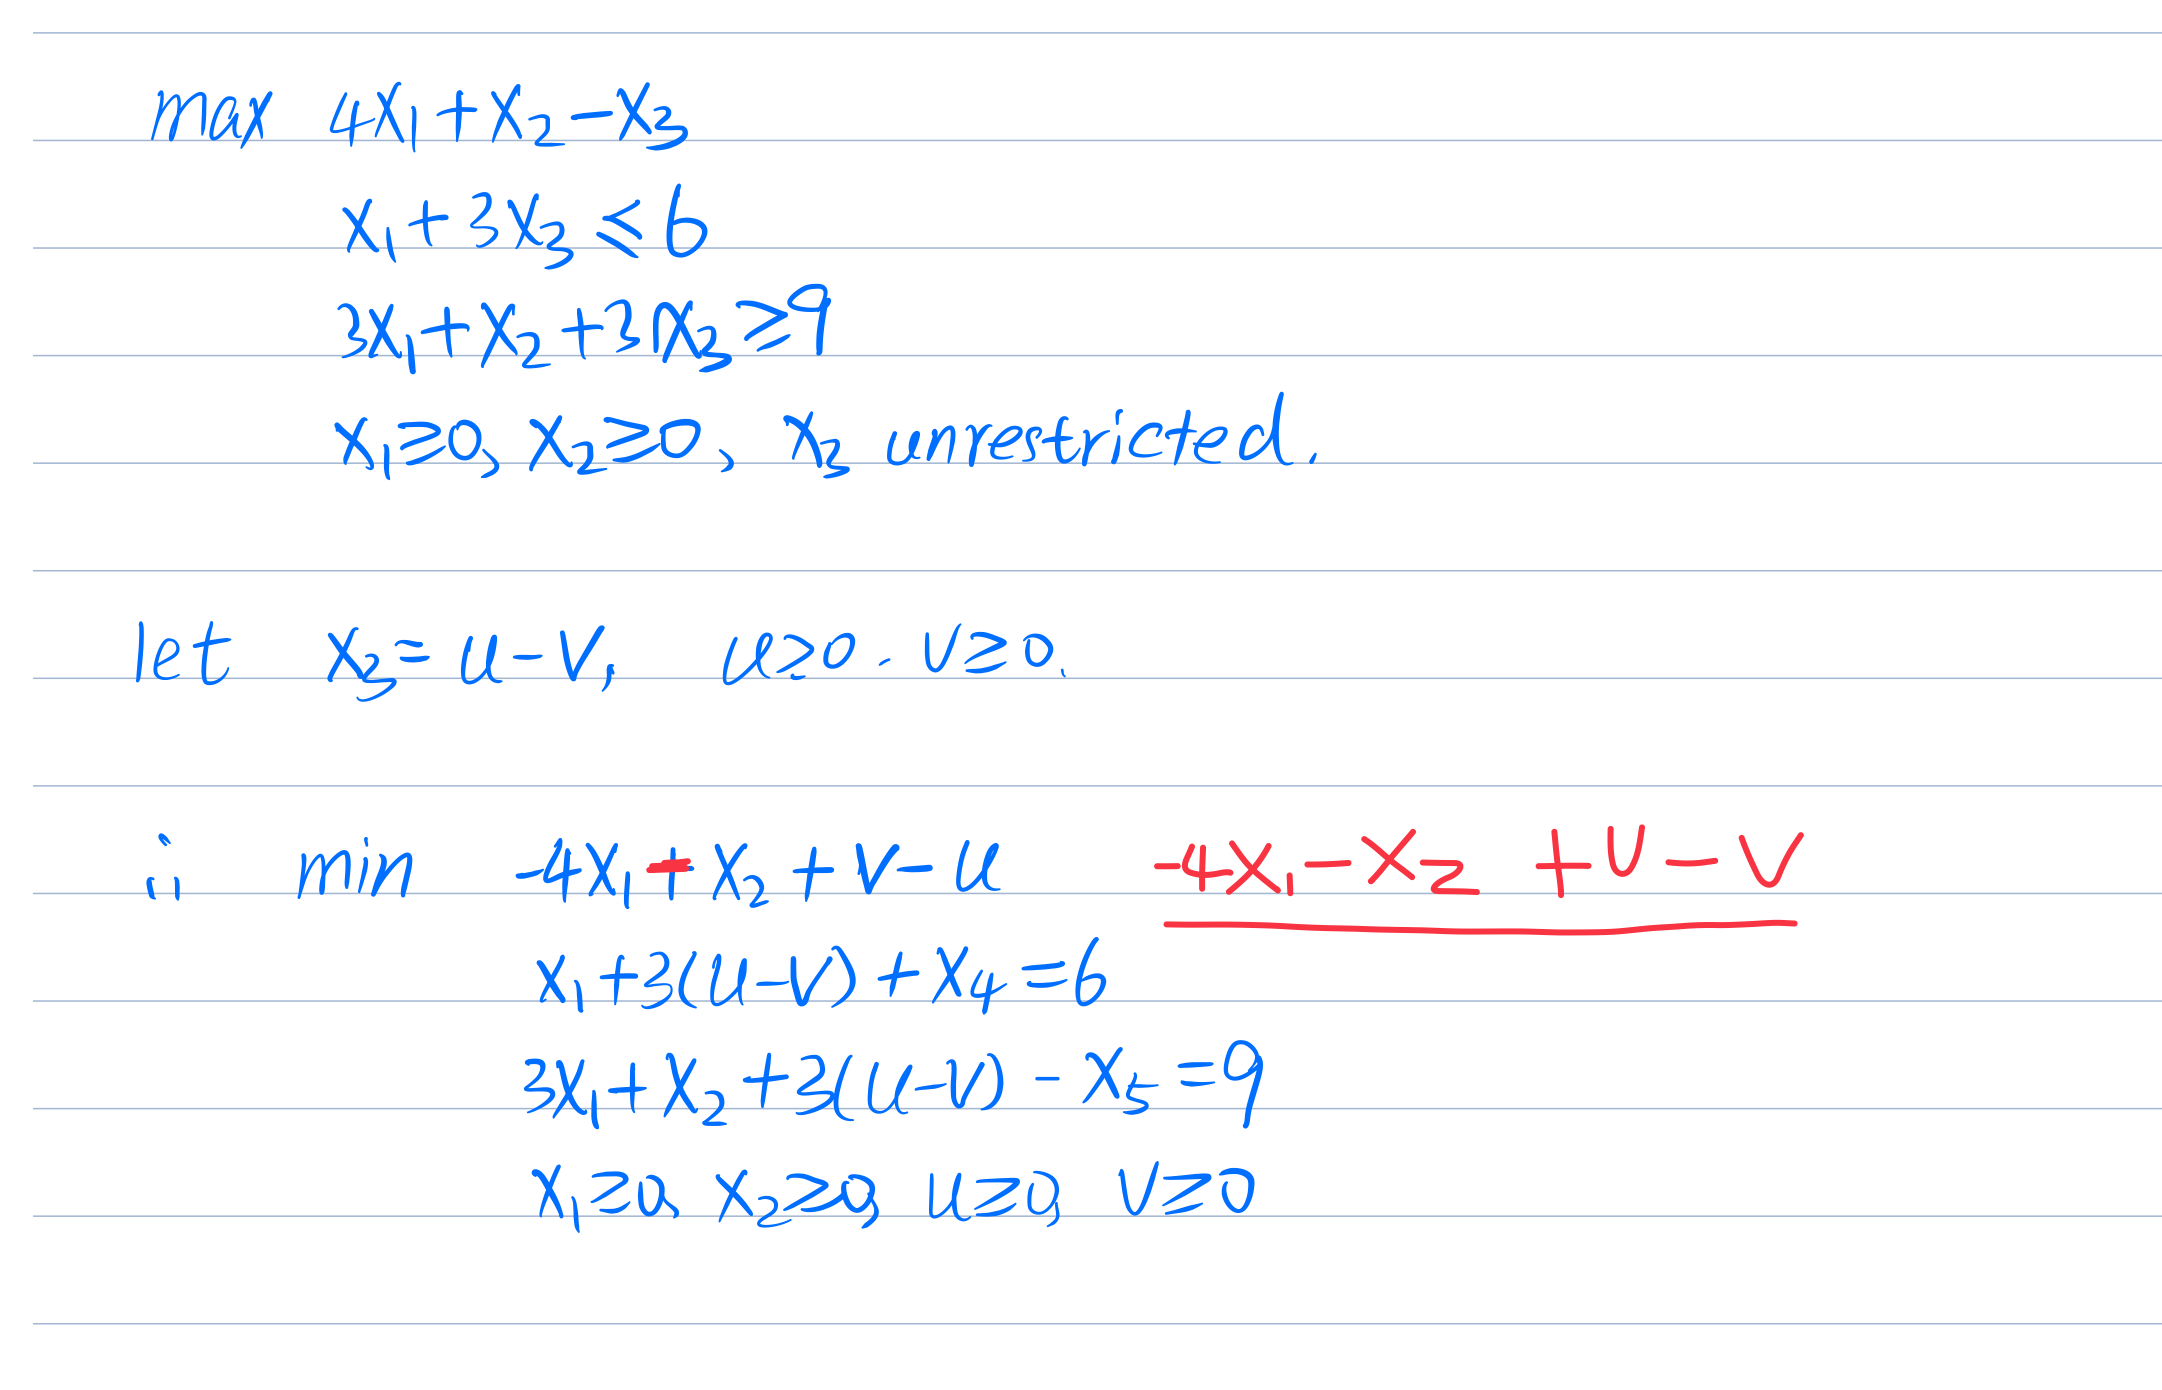 max 4x₁+x₂-x₃
x₁+3x₃≤6
3x₁+x₂+3x₃≥9
x₁≥0, x₂≥0, x₃ unrestricted.
let x₃=u-v, u≥0. v≥0.
∴ min -4x₁+x₂+v-u -4x₁-x₂+u-v
x₁+3(u-v)+x₄=6
3x₁+x₂+3(u-v)-x₅=9
x₁≥0, x₂≥0, u≥0, v≥0